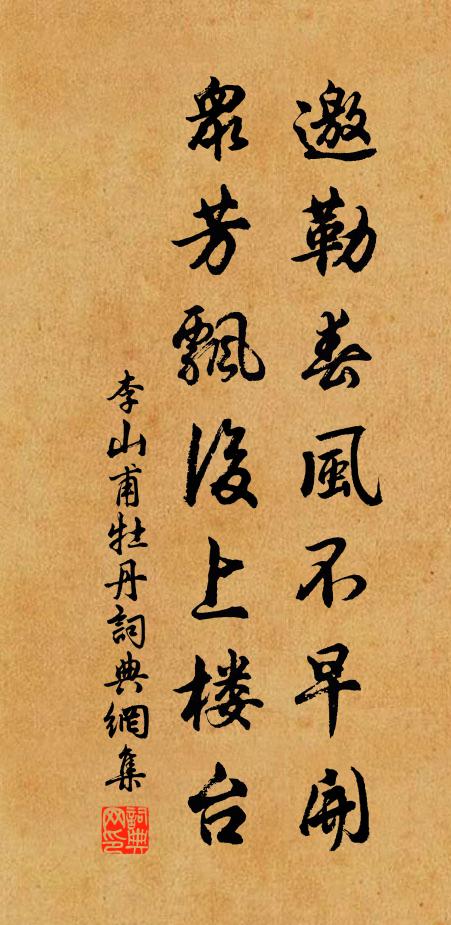 邀勒春風不早開
衆芳飄後上楼台
李山甫牡丹詞典網集
詞典网印